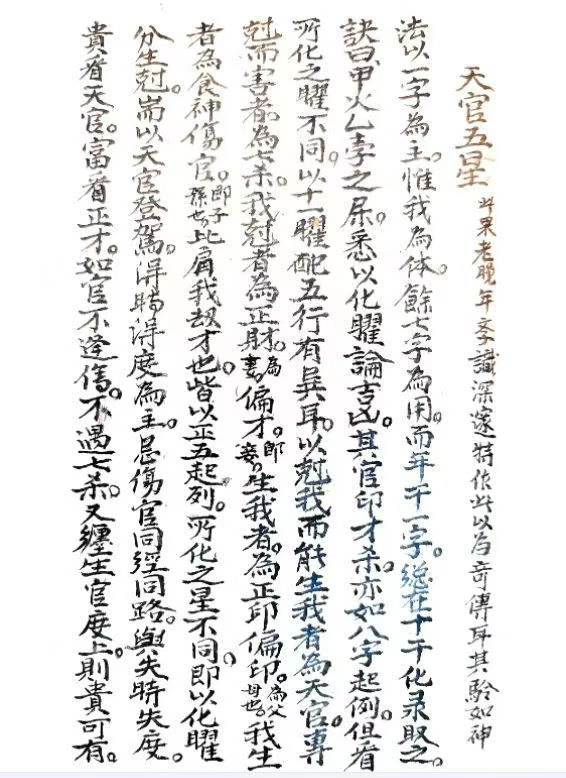 天官五星 此果老晚年李識深邃特作此以为奇傳耳其驗如神
法以一字為主。惟我為体。餘七字為用。而年干一字。總在十干化录取之。
訣曰。甲火乙孛之屎。悉以化曜論吉凶。其官印才杀。亦如八字起例。但看
所化之曜不同。以十一曜配五行有異耳。以尅我而能生我者為天官。專
尅而害者。為七杀。我尅者為正財。為妻。偏才。即妾。生我者。為正印偏印。為父母也。我生
者為食神傷官。即子孫也。比肩我刼才也。皆以正五起列。所化之星不同。即以化曜
分生尅。耑以天官登駕。得時得度為主。忌傷官同經同路。與失特失度。
貴看天官。富看正才。如官不逢傷。不遇七杀。又纏生官度上。則貴可有。